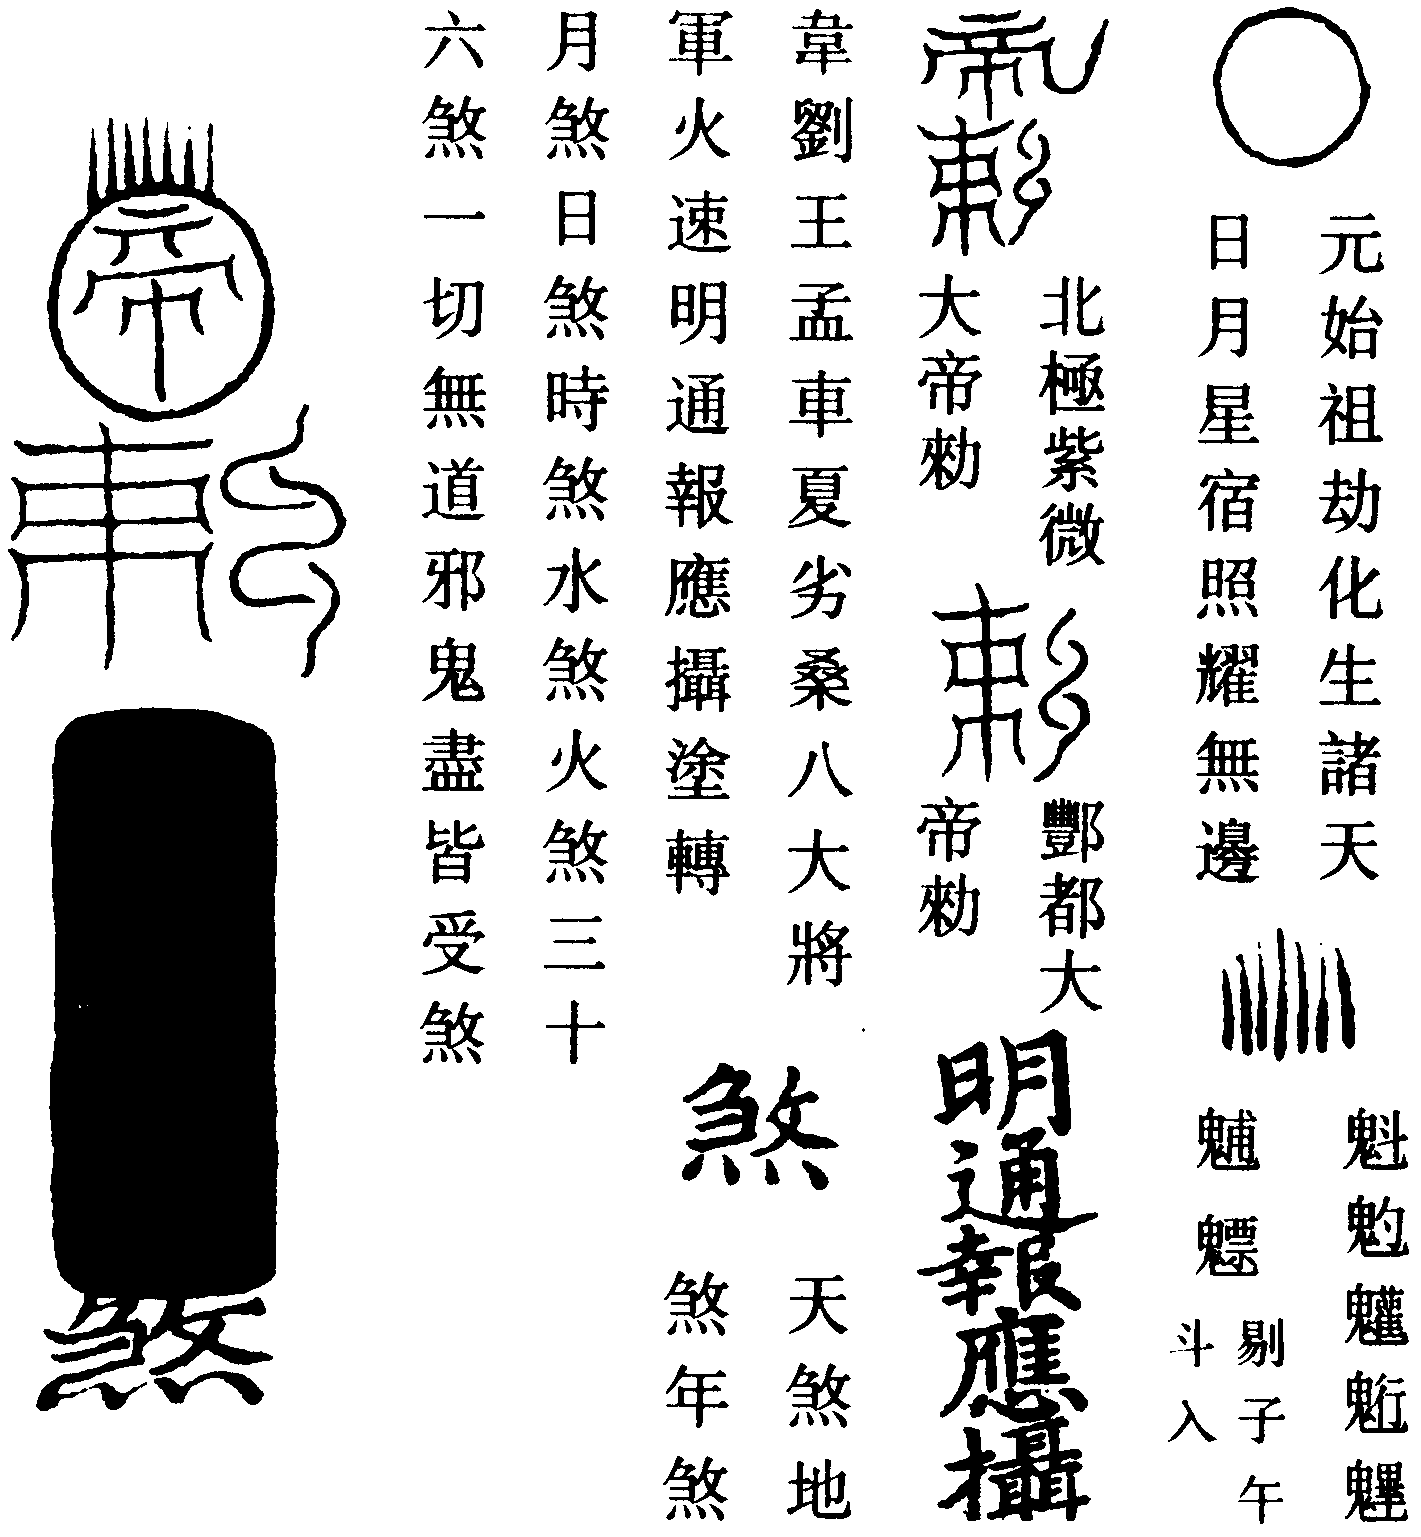 元始祖劫化生諸天
日月星宿照耀無邊
魁魓
魒
剔子午
斗入
帝
勅
北極紫微
大帝勑
勅
酆都大
帝勑
明通報應攝
韋劉王孟車夏劣桑八大將
軍火速明通報應攝塗轉
煞
天煞地
煞年煞
月煞日煞時煞水煞火煞三十
六煞一切無道邪鬼盡皆受煞
帝
勅
煞